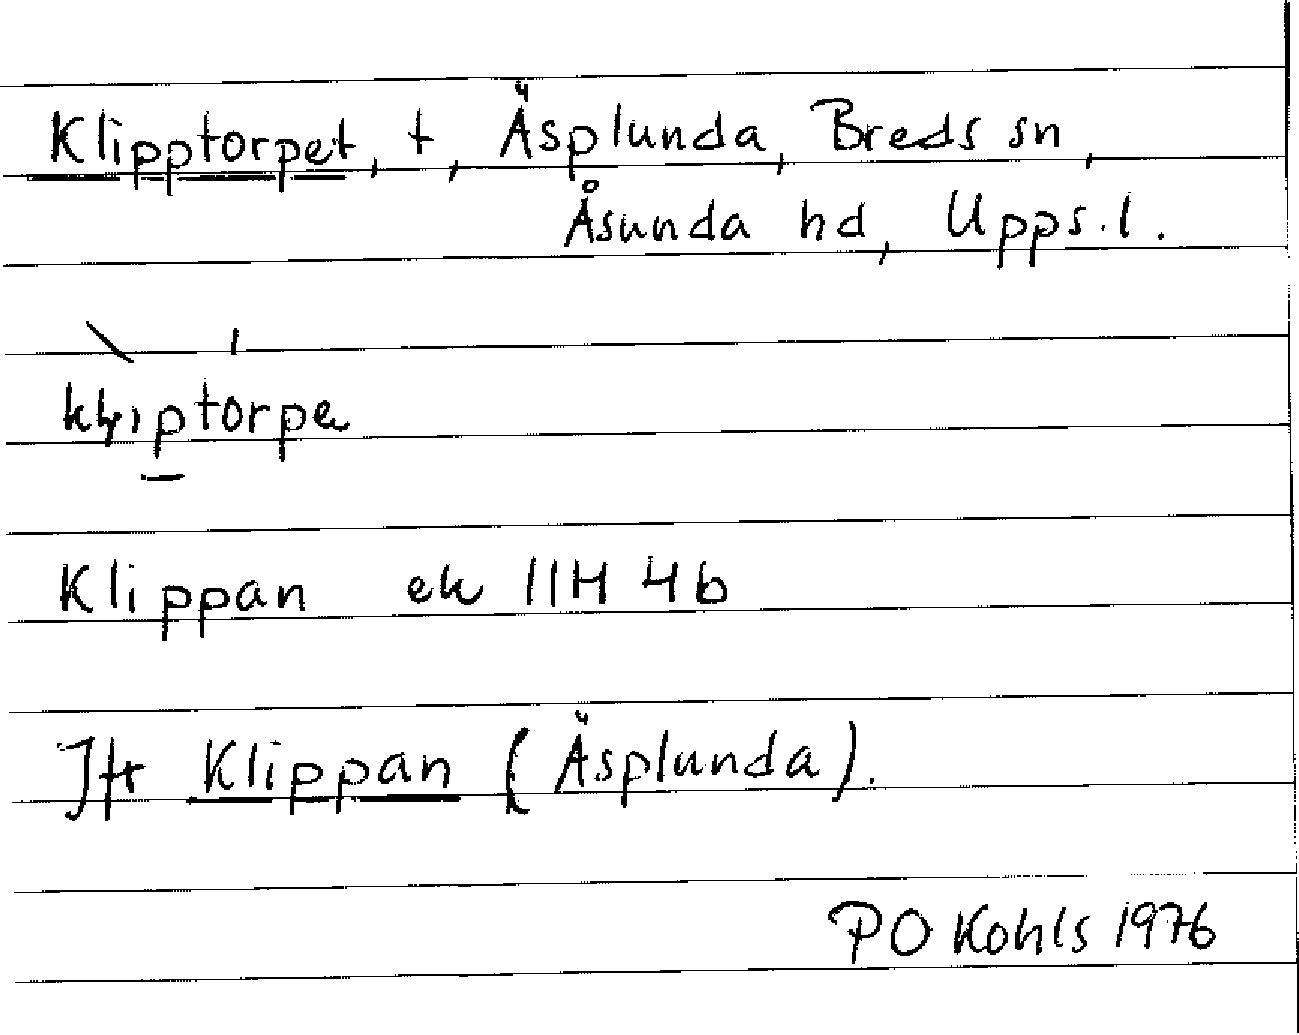 Klipptorpet, t, Äsplunda, Breds sn,
Åsunda hd, Upps.l.
kliptorpe
Klippan ek 11H 4b
Jfr Klippan (Äsplunda).
PO Kohls 1976